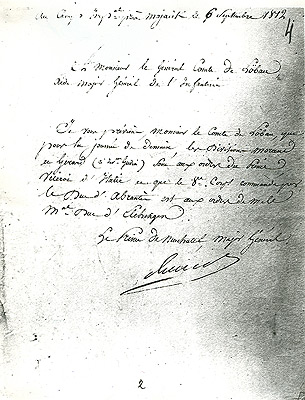 Au Camp Imp.al près Mojaisk le 6 Septembre 1812
4
A Monsieur le Général Comte de Lobau
Aide Major Général de l'Infanterie
Je vous préviens Monsieur le Comte de Lobau, que
pour la journée de demain les Divisions Morand
et Gérard sont aux ordres du Prince
Viceroi d'Italie et que le 8e Corps commandé par
le Duc d'Abrantès est aux ordres de M. le
M.al Duc d'Elchingen.
Le Prince de Neuchatel Major Général
2